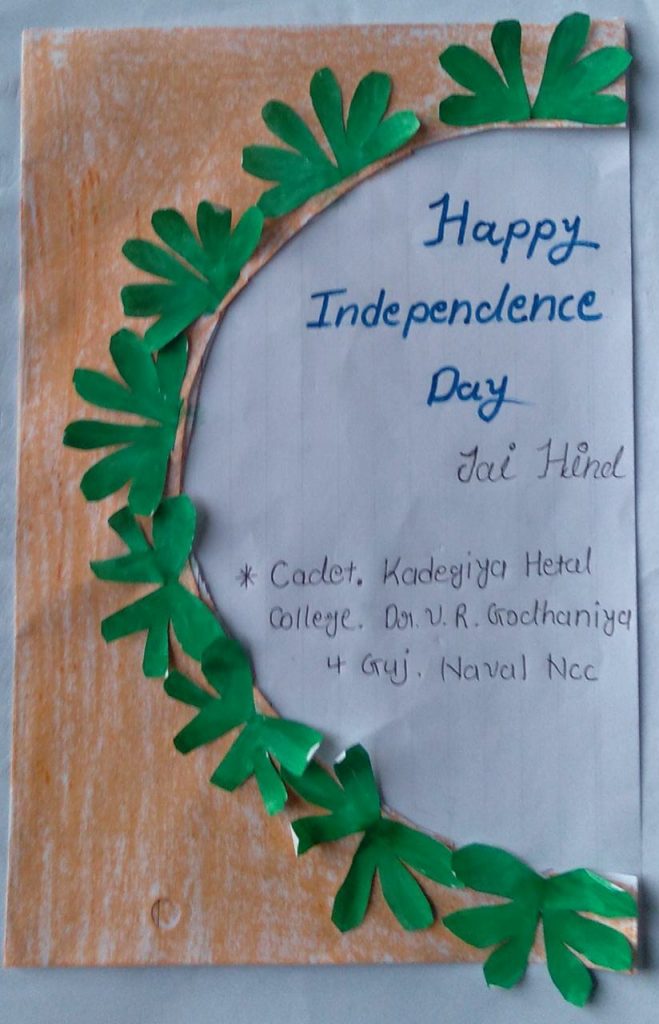 Happy
Independence
Day
Jai Hind
* Cadet. Kadegiya Hetal
College. Dr. V. R. Godhaniya
4 Guj. Naval Ncc